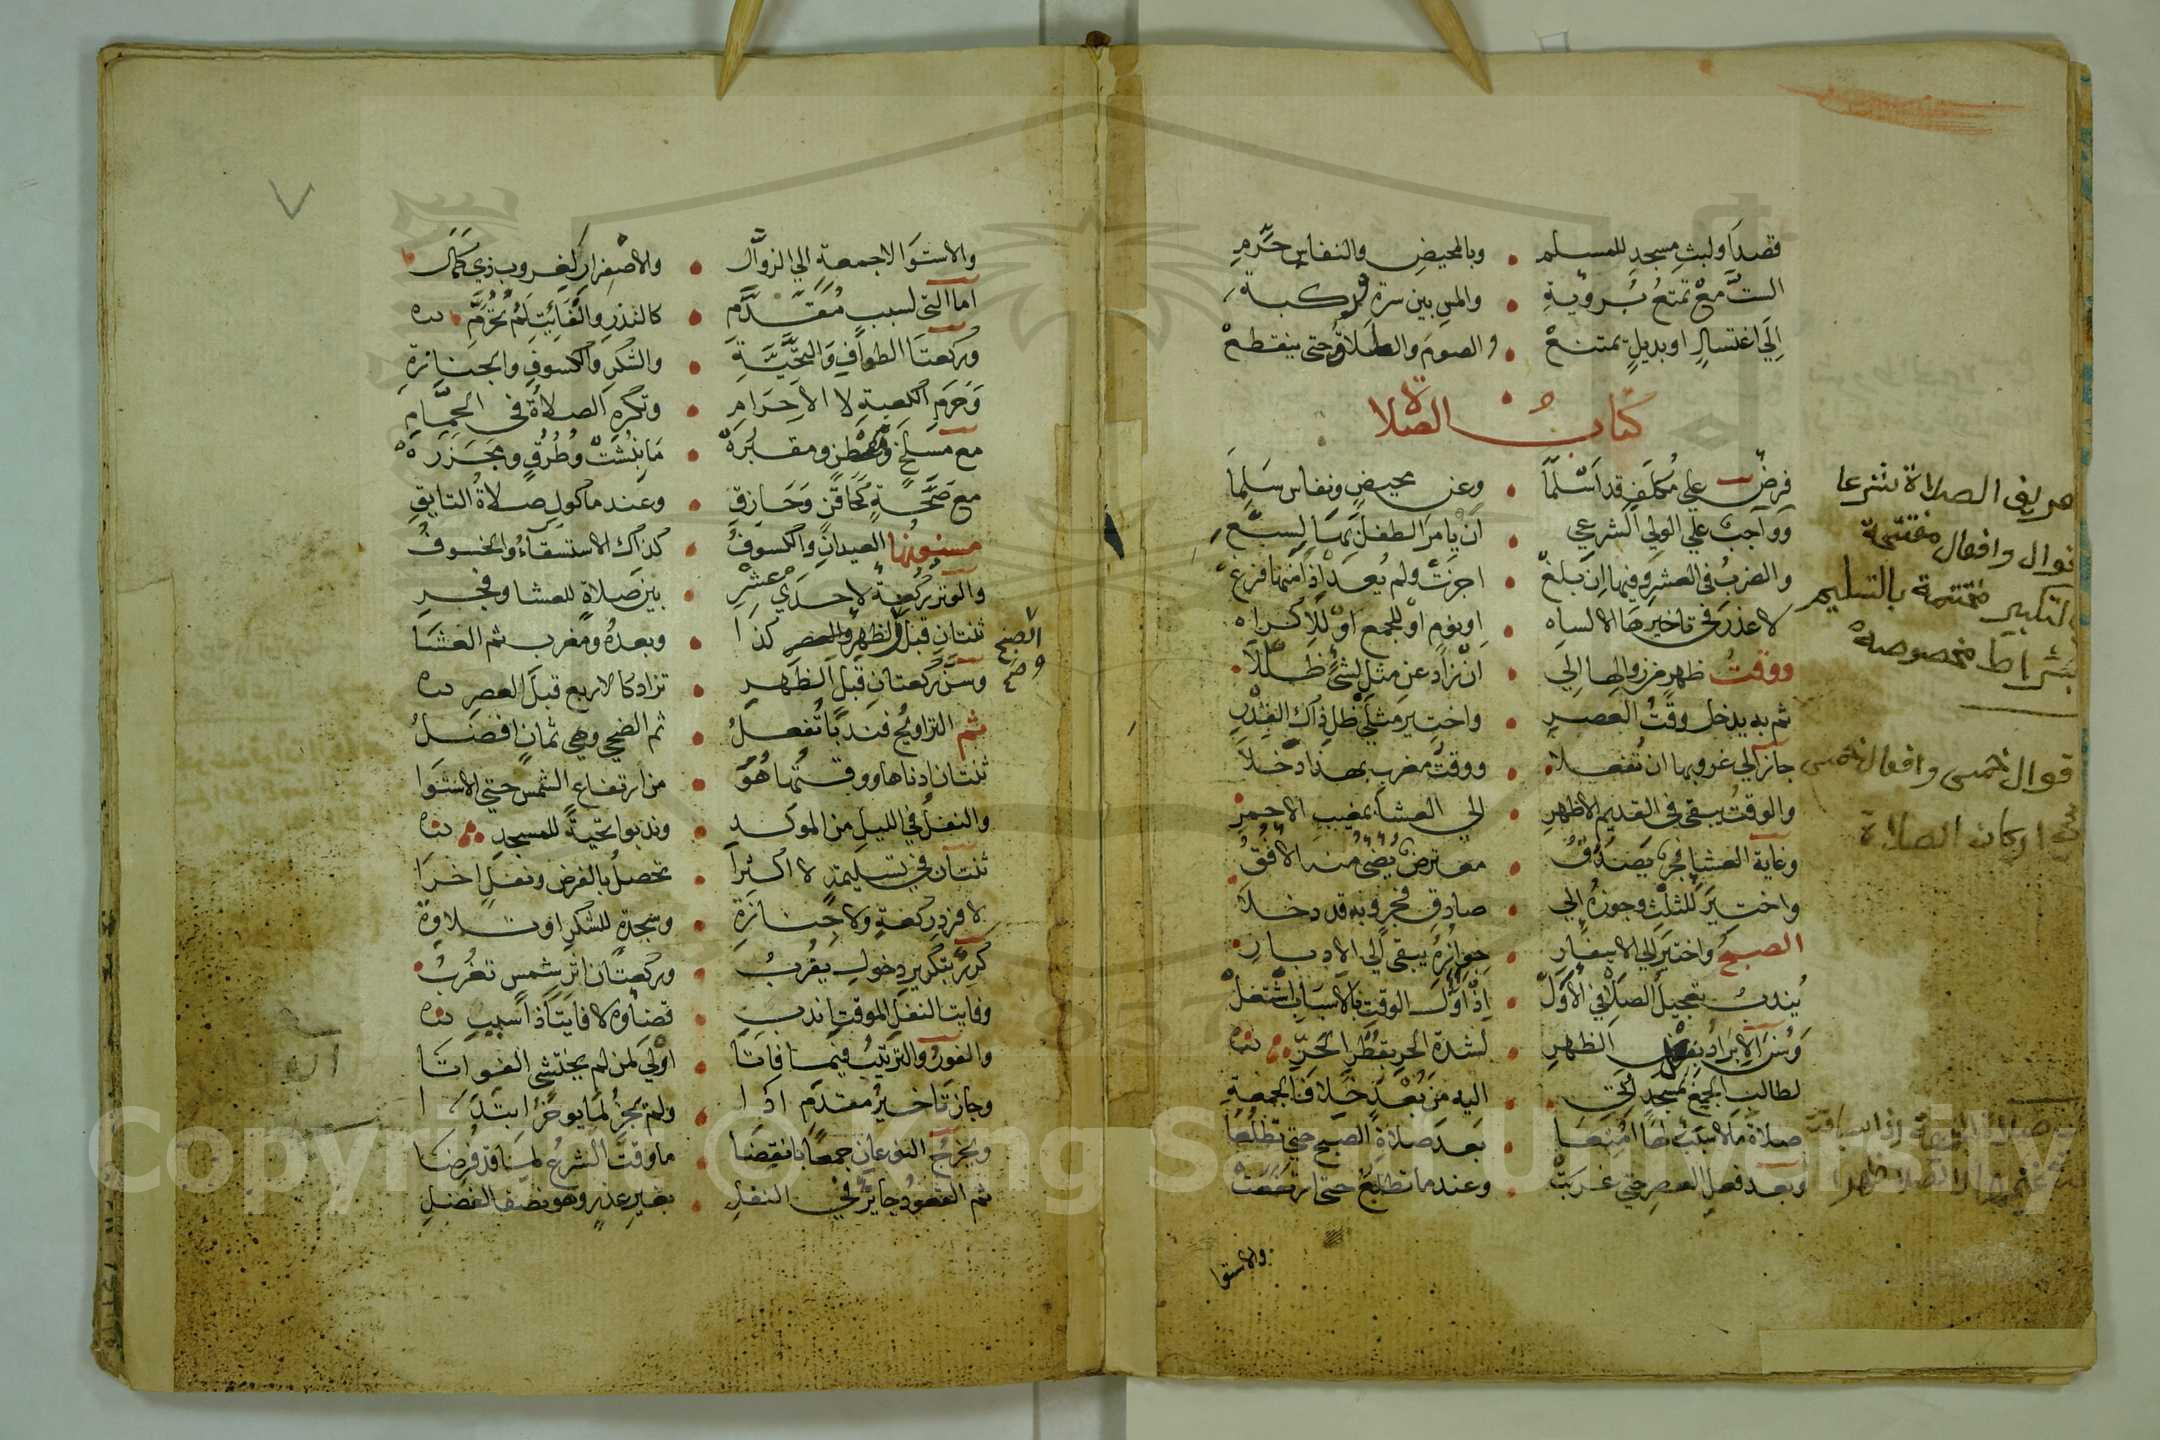 قصدا ولبث مسجد للمسلم • وبالمحيض والنفاس حرم
الست مع تمتع برؤية • والمس بين سرة وركبة
إلى اغتسال او بديل يمتنع • والصوم والطلاق حتى ينقطع
كتاب الصلاة
فرض علي مكلف قد اسلما • وعن محيض ونفاس سلما
وواجب علي الولي الشرعي • ان يامر الطفل بها لسبع
والضرب في العشر وفيها ان بلغ • اجزت ولم يعد اذا منها فزغ
لا عذر في تاخيرها الا لساه • او نوم او للجمع او للاكراه
ووقت ظهر من زوالها الي • ان زاد عن مثل لشئ ظللا
ثم به يدخل وقت العصر • واختير مثلي ظل ذاك القدر
جاز الي غروبها ان تفعلا • ووقت مغرب بهذا دخلا
والوقت يبقي في القديم الاظهر • الي العشا بمغيب الاحمر
وغاية العشا فجر يصدق • معترض يضئ منه الافق
واختير للثلث وجوزه الي • صادق فجر وبه قد دخلا
الصبح واختير الي الاسفار • جوازه يبقي الي الادبار
يندب تعجيل الصلا في الاول • اذ اول الوقت بالاسباب اشتغل
وسن الابراد بفعل الظهر • لشدة الحر بقطر الحر
لطالب الجمع بمسجد اتي • اليه من بعد خلاف الجمعة
صلاة ما لا سبب لها امنعا • بعد صلاة الصبح حتي تطلعا
وبعد فعل العصر حتي غربت • وعند ما تطلع حتي ارتفعت
والاستوا
تعريف الصلاة شرعا
اقوال وافعال مفتتحة
بالتكبير مختتمة بالتسليم
بشرائط مخصوصة
اقوال خمس وافعال خمس
اركان الصلاة
٧
والاستوا لا جمعة الي الزوال • والاصفرار لغروب ذي كمال
اما التي لسبب مقدم • كالنذر والفائت لم تحرم
وركعتا الطواف والتحية • والشكر والكسوف والجنازة
وحرم الكعبة لا الاحرام • وتكره الصلاة في الحمام
مع مسلخ وعطن ومقبره • ما نبشت وطرق ومجزره
مع صحة كحاقن وحازق • وعند ماكول صلاة التايق
مسنونها العيدان والكسوف • كذاك الاستسقاء والخسوف
والوتر ركعة لاحدي عشر • بين صلاة للعشا وفجر
ثنتان قبل الظهر والعصر كذا • وبعده ومغرب ثم العشا
الصبح
صح
وسن ركعتان قبل الظهر • تزاد كالاربع قبل العصر
ثم التراويح فندبا تفعل • ثم الضحي وهي ثمان افضل
ثنتان ادناها ووقتها هو • من ارتفاع الشمس حتي الاستوا
والنفل في الليل من الموكد • وندبوا تحية للمسجد
ثنتان في تسليمة لا اكثرا • تحصل بالفرض ونفل اخرا
لا فرد ركعة ولا جنازة • وسجدة للشكر او تلاوة
كرر بتكرير دخول يقرب • وركعتان اثر شمس تغرب
وفايت النفل الموقت اندب • قضاؤه لا فايتا ذا سبب
والفور والترتيب فيما فاتا • اولي لمن لم يختشي الفواتا
وجاز تاخير مقدم اذا • ولم يجز لما يوخر ابتدا
ويخرج النوعان جمعا بانقضا • ما وقت الشرع لما قد فرضا
ثم القعود جايز في النفل • بغير عذر وهو نصف الفضل
Copyright © King Saud University